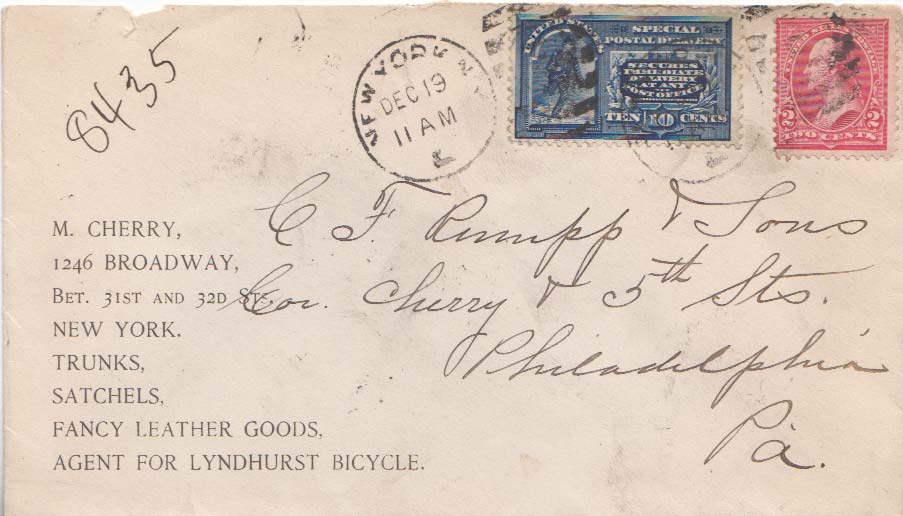 8435
NEW YORK N.Y.
DEC 19
11 AM
UNITED STATES
SPECIAL
POSTAL DELIVERY
SECURES
IMMEDIATE
DELIVERY
AT ANY
POST OFFICE
TEN 10 CENTS
2 2
TWO CENTS
C F. Rumpp & Sons
Cor. Cherry & 5th Sts.
Philadelphia
Pa.
M. CHERRY,
1246 BROADWAY,
BET. 31ST AND 32D STS.
NEW YORK.
TRUNKS,
SATCHELS,
FANCY LEATHER GOODS,
AGENT FOR LYNDHURST BICYCLE.